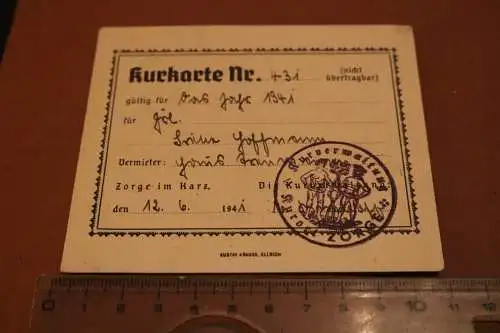 Kurkarte Nr. 431 (nicht übertragbar)
gültig für das Jahr 1941
für Frl.
Hoffmann
Vermieter: Haus
Zorge im Harz. Die Kurverwaltung
den 12. 6. 1941
Kurverwaltung
ZORGE
GUSTAV KRAUSE, ELLRICH
0 1 2 3 4 5 6 7 8 9 10 11 12